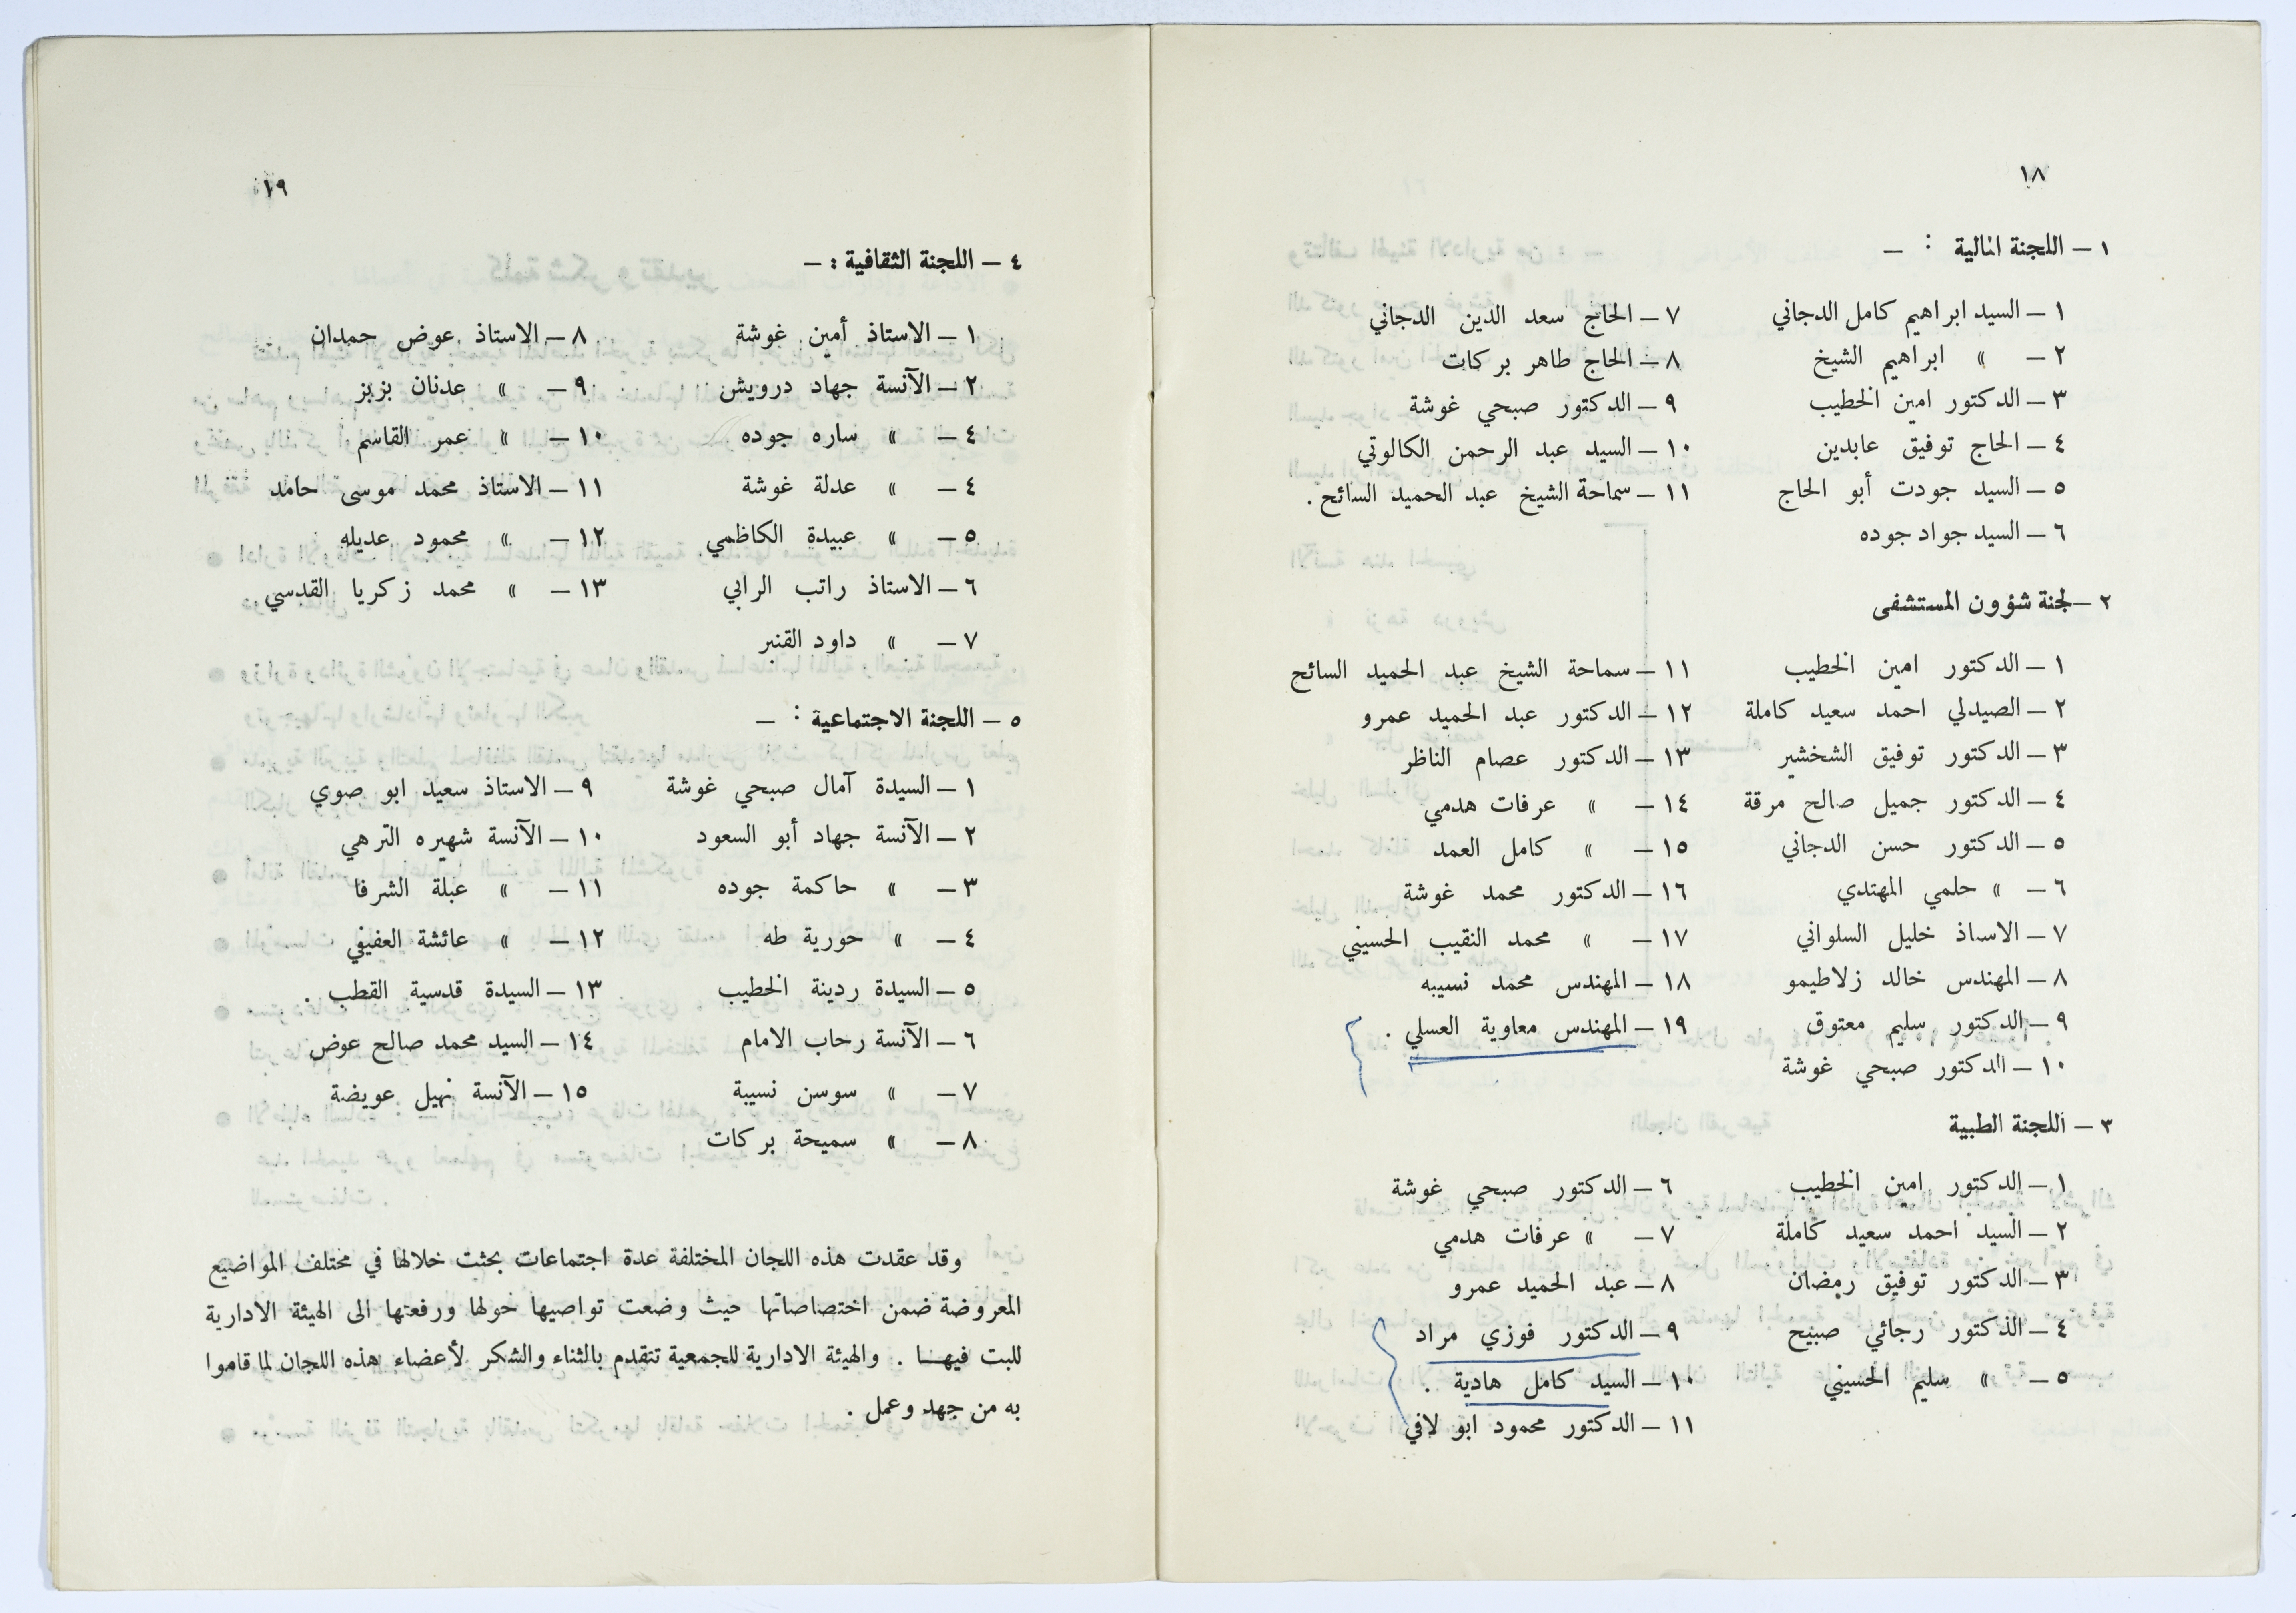 ١٨
١ – اللجنة المالية : –
١ – السيد ابراهيم كامل الدجاني
٢ – » ابراهيم الشيخ
٣ – الدكتور امين الخطيب
٤ – الحاج توفيق عابدين
٥ – السيد جودت أبو الحاج
٦ – السيد جواد جوده
٧ – الحاج سعد الدين الدجاني
٨ – الحاج طاهر بركات
٩ – الدكتور صبحي غوشة
١٠ – السيد عبد الرحمن الكالوتي
١١ – سماحة الشيخ عبد الحميد السائح .
٢ – لجنة شؤون المستشفى
١ – الدكتور امين الخطيب
٢ – الصيدلي احمد سعيد كاملة
٣ – الدكتور توفيق الشخشير
٤ – الدكتور جميل صالح مرقة
٥ – الدكتور حسن الدجاني
٦ – » حلمي المهتدي
٧ – الاساذ خليل السلواني
٨ – المهندس خالد زلاطيمو
٩ – الدكتور سليم معتوق
١٠ – الدكتور صبحي غوشة
١١ – سماحة الشيخ عبد الحميد السائح
١٢ – الدكتور عبد الحميد عمرو
١٣ – الدكتور عصام الناظر
١٤ – » عرفات هدمي
١٥ – » كامل العمد
١٦ – الدكتور محمد غوشة
١٧ – » محمد النقيب الحسيني
١٨ – المهندس محمد نسيبه
١٩ – المهندس معاوية العسلي .
٣ – اللجنة الطبية
١ – الدكتور امين الخطيب
٢ – السيد احمد سعيد كاملة
٣ – الدكتور توفيق رمضان
٤ – الدكتور رجائي صبيح
٥ – » سليم الحسيني
٦ – الدكتور صبحي غوشة
٧ – » عرفات هدمي
٨ – عبد الحميد عمرو
٩ – الدكتور فوزي مراد
١٠ – السيد كامل هادية .
١١ – الدكتور محمود ابو لافي
١٩
٤ – اللجنة الثقافية : –
١ – الاستاذ أمين غوشة
٢ – الآنسة جهاد درويش
٤ – » ساره جوده
٤ – » عدلة غوشة
٥ – » عبيدة الكاظمي
٦ – الاستاذ راتب الرابي
٧ – » داود القنبر
٨ – الاستاذ عوض حمدان
٩ – » عدنان بزبز
١٠ – » عمر القاسم
١١ – الاستاذ محمد موسى حامد
١٢ – » محمود عديله
١٣ – » محمد زكريا القدسي
٥ – اللجنة الاجتماعية : –
١ – السيدة آمال صبحي غوشة
٢ – الآنسة جهاد أبو السعود
٣ – » حاكمة جوده
٤ – » حورية طه
٥ – السيدة ردينة الخطيب
٦ – الآنسة رحاب الامام
٧ – » سوسن نسيبة
٨ – » سميحة بركات
٩ – الاستاذ سعيد ابو صوي
١٠ – الآنسة شهيره الترهي
١١ – » عبلة الشرفا
١٢ – » عائشة العفيفي
١٣ – السيدة قدسية القطب .
١٤ – السيد محمد صالح عوض
١٥ – الآنسة نهيل عويضة
وقد عقدت هذه اللجان المختلفة عدة اجتماعات بحثت خلالها في مختلف المواضيع
المعروضة ضمن اختصاصاتها حيث وضعت تواصيها حولها ورفعتها الى الهيئة الادارية
للبت فيهـا . والهيئة الادارية للجمعية تتقدم بالثناء والشكر لأعضاء هذه اللجان لما قاموا
به من جهد وعمل .